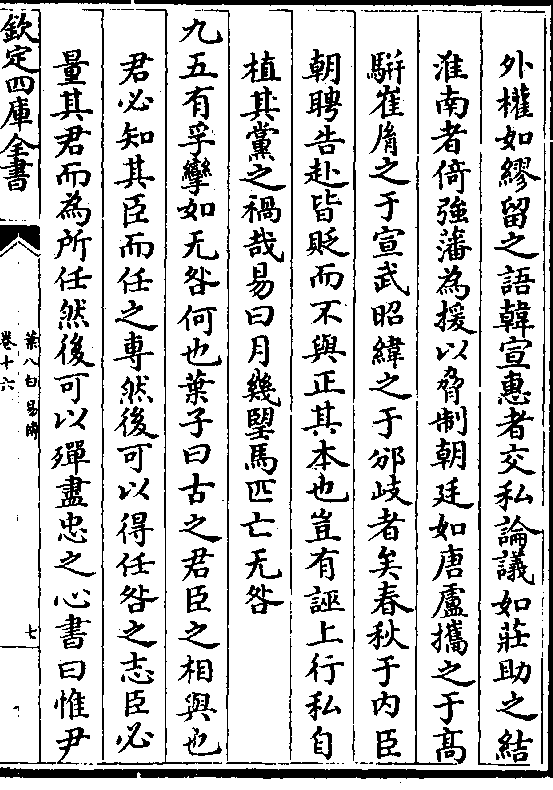 外權如繆留之語韓宣惠者交私論議如莊助之結
淮南者倚強藩為援以脅制朝廷如唐盧攜之于高
駢崔𦙍之于宣武昭緯之于邠岐者矣春秋于内臣
朝聘告赴皆貶而不與正其本也豈有誣上行私自
植其黨之禍哉易曰月幾朢馬匹亡无咎
九五有孚攣如无咎何也葉子曰古之君臣之相與也
君必知其臣而任之專然後可以得任咎之志臣必
量其君而為所任然後可以殫盡忠之心書曰惟尹
欽定四庫全書
葉八白易傳
卷十六
七